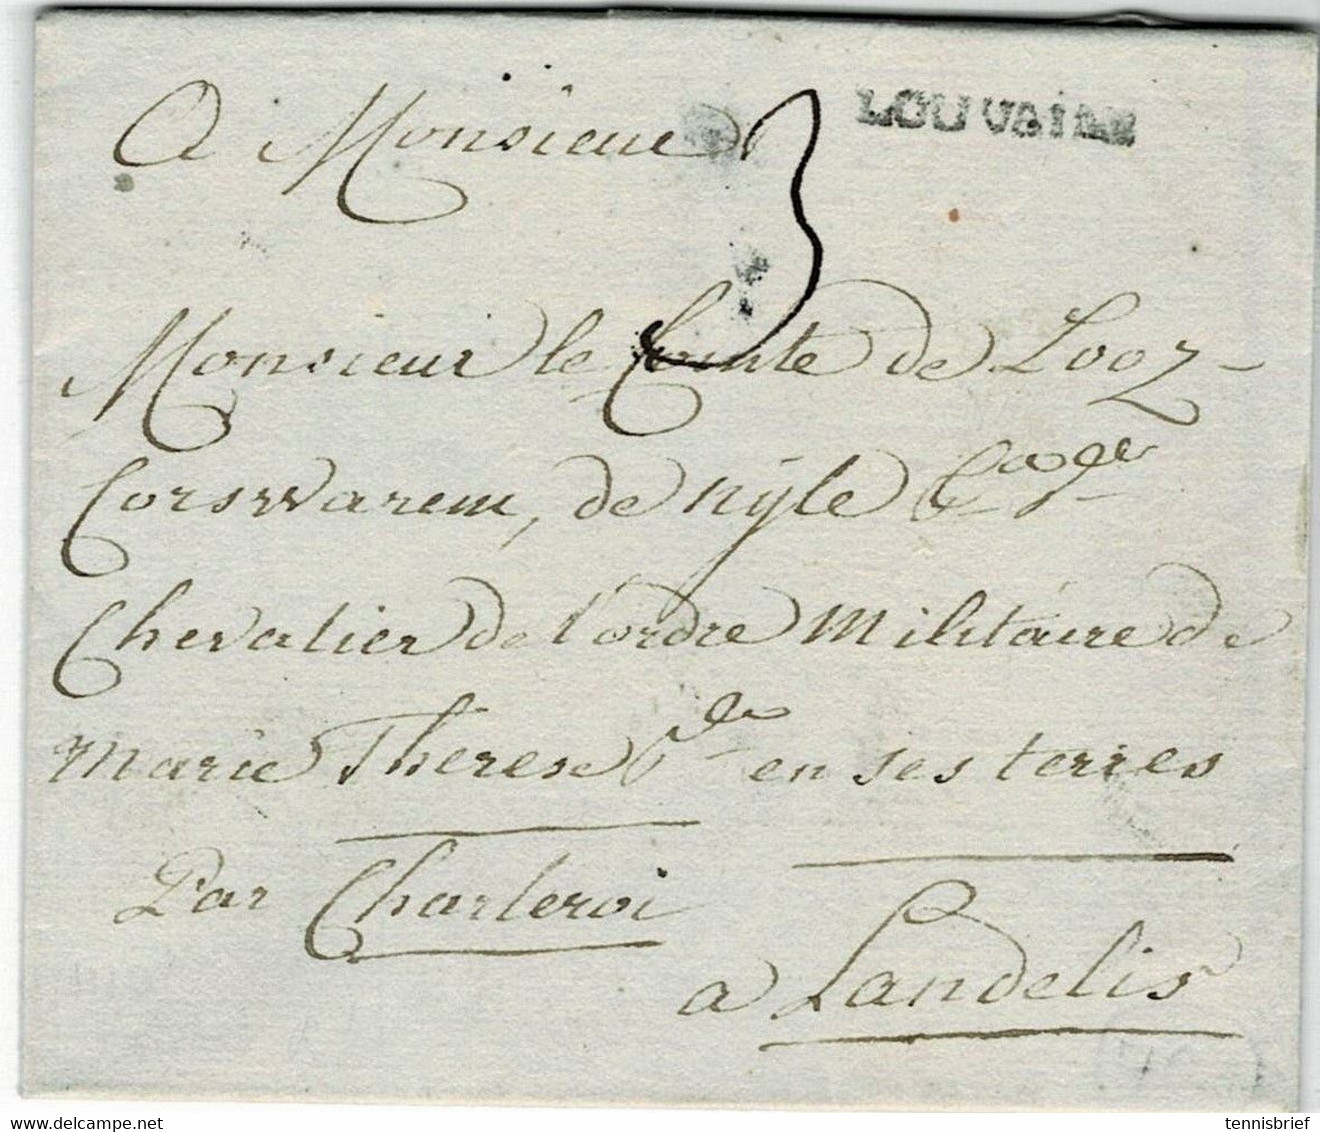 A Monsieur
3
LOUVAIN
Monsieur le Comte de Looz-
Corswarem, de Nÿle
Chevalier de l'ordre Militaire de
Marie Therese en ses terres
Par Charleroi
a Landelis
Delcampe.net
tennisbrief